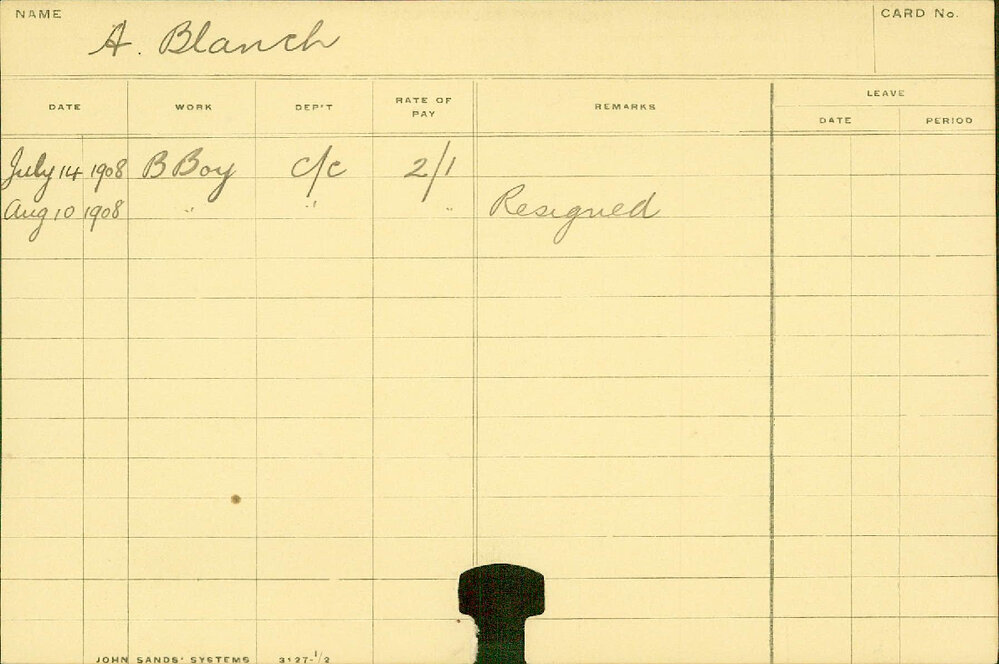 NAME A. Blanch CARD No.
DATE WORK DEP'T RATE OF PAY REMARKS LEAVE
DATE PERIOD
July 14 1908 B Boy c/c 2/1
Aug 10 1908 " " " Resigned
JOHN SANDS' SYSTEMS 3127-1/2